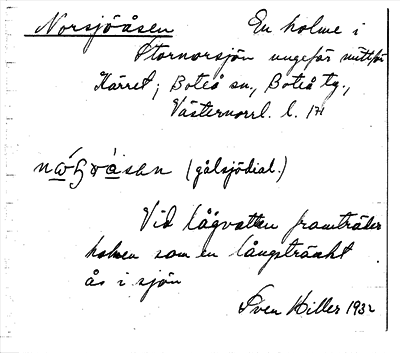 Norsjöåsen En holme i
Stornorsjön ungefär mittför
Kärret; Boteå sn., Boteå tg.,
Västernorrl. l.
(gålsjödial.)
Vid lågvatten framträder
holmen som en långsträckt
ås i sjön
Sven Hiller 1932